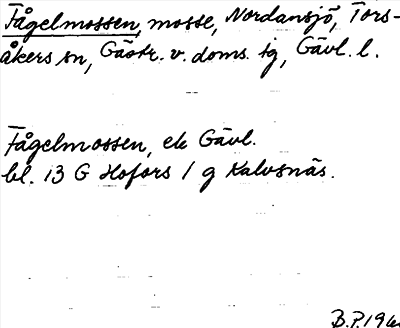 Fågelmossen, mosse, Nordansjö, Tors-
åkers sn, Gästr. v. doms. tg, Gävl. l.
Fågelmossen, ek Gävl.
bl. 13 G Hofors / g Kalvsnäs.
B.P. 196